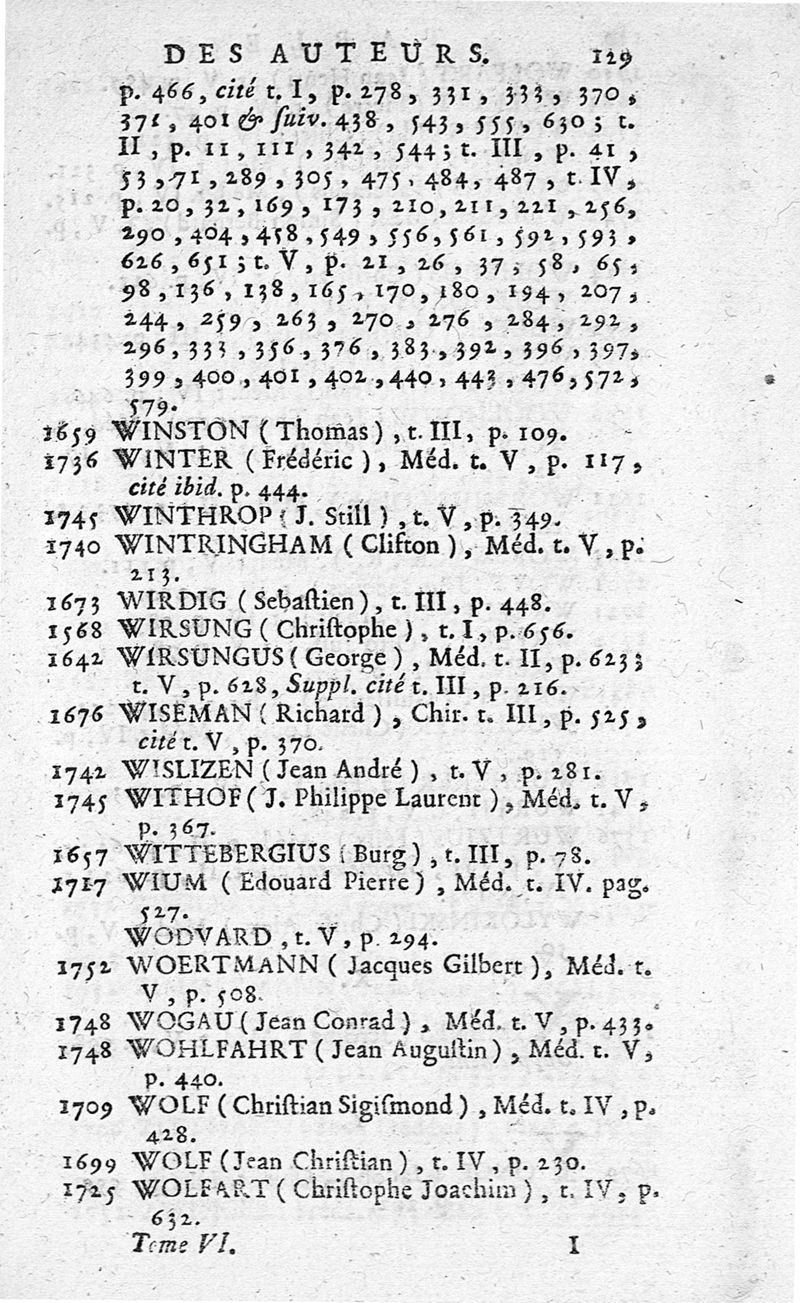 DES AUTEURS. 129
p. 466, cité t. I, p. 278, 331, 333, 370,
371, 401 & ſuiv. 438, 543, 555, 630; t.
II, p. 11, 111, 342, 544; t. III, p. 41,
53, 71, 289, 305, 475, 484, 487, t. IV,
p. 20, 32, 169, 173, 210, 211, 221, 256,
290, 404, 458, 549, 556, 561, 592, 593,
626, 651; t. V, p. 21, 26, 37, 58, 65,
98, 136, 138, 165, 170, 180, 194, 207,
244, 259, 263, 270, 276, 284, 292,
296, 333, 356, 376, 383, 392, 396, 397,
399, 400, 401, 402, 440, 443, 476, 572,
579.
1659 WINSTON (Thomas), t. III, p. 109.
1736 WINTER (Frédéric), Méd. t. V, p. 117,
cité ibid. p. 444.
1745 WINTHROP (J. Still), t. V, p. 349.
1740 WINTRINGHAM (Clifton), Méd. t. V, p.
213.
1673 WIRDIG (Sebaſtien), t. III, p. 448.
1568 WIRSUNG (Chriſtophe), t. I, p. 656.
1642 WIRSUNGUS (George), Méd. t. II, p. 623;
t. V, p. 628, Suppl. cité t. III, p. 216.
1676 WISEMAN (Richard), Chir. t. III, p. 525,
cité t. V, p. 370.
1742 WISLIZEN (Jean André), t. V, p. 281.
1745 WITHOF (J. Philippe Laurent), Méd. t. V,
p. 367.
1657 WITTEBERGIUS (Burg), t. III, p. 78.
1717 WIUM (Edouard Pierre), Méd. t. IV. pag.
527.
WODVARD, t. V, p. 294.
1752 WOERTMANN (Jacques Gilbert), Méd. t.
V, p. 508.
1748 WOGAU (Jean Conrad), Méd. t. V, p. 433.
1748 WOHLFAHRT (Jean Auguſtin), Méd. t. V,
p. 440.
1709 WOLF (Chriſtian Sigiſmond), Méd. t. IV, p.
428.
1699 WOLF (Jean Chriſtian), t. IV, p. 230.
1725 WOLFART (Chriſtophe Joachim), t. IV, p.
632.
Tome VI. I